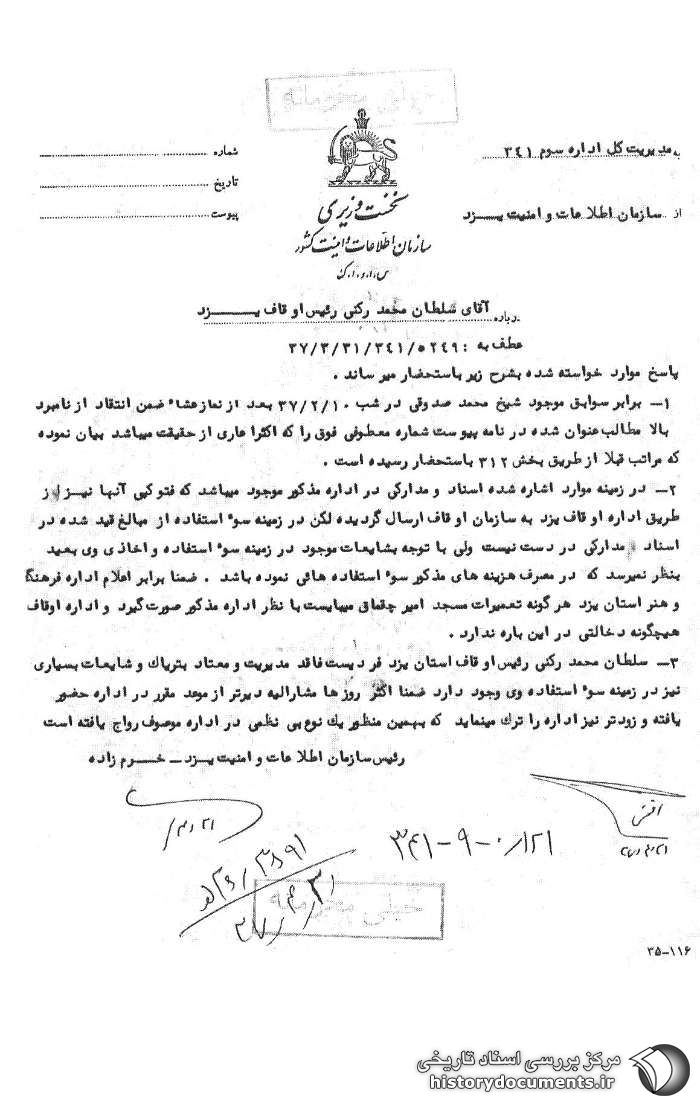 خیلی محرمانه
به مدیریت کل اداره سوم ۳۴۱
شماره
از سازمان اطلاعات و امنیت یزد
تاریخ
پیوست
نخست وزیری
سازمان اطلاعات و امنیت کشور
س.ا.و.ا.ک
درباره آقای سلطان محمد رکنی رئیس اوقاف یـــزد
عطف به : ۳۷/۳/۳۱/۳۴۱/۵۲۴۹
پاسخ موارد خواسته شده بشرح زیر باستحضار میرساند .
۱ـ برابر سوابق موجود شیخ محمد صدوقی در شب ۳۷/۲/۱۰ بعد از نماز عشاء ضمن انتقاد از نامبرد
بالا مطالب عنوان شده در نامه پیوست شماره معطوفی فوق را که اکثرا عاری از حقیقت میباشد بیان نموده
که مراتب قبلا از طریق بخش ۳۱۲ باستحضار رسیده است .
۲ـ در زمینه موارد اشاره شده اسناد و مدارکی در اداره مذکور موجود میباشد که فتوکپی آنها نیز از
طریق اداره اوقاف یزد به سازمان اوقاف ارسال گردیده لکن در زمینه سوء استفاده از مبالغ قید شده در
اسناد مدارکی در دست نیست ولی با توجه بشایعات موجود در زمینه سوء استفاده و اخاذی وی بعید
بنظر نمیرسد که در مصرف هزینه های مذکور سوء استفاده هائی نموده باشد . ضمنا برابر اعلام اداره فرهنگ
و هنر استان یزد هرگونه تعمیرات مسجد امیر چقماق میبایست با نظر اداره مذکور صورت گیرد و اداره اوقاف
هیچگونه دخالتی در این باره ندارد .
۳ـ سلطان محمد رکنی رئیس اوقاف استان یزد فردیست فاقد مدیریت و معتاد بتریاک و شایعات بسیاری
نیز در زمینه سوء استفاده وی وجود دارد ضمنا اکثر روزها مشارالیه دیرتر از موعد مقرر در اداره حضور
یافته و زودتر نیز اداره را ترک مینماید که بهمین منظور یک نوع بی نظمی در اداره موصوف رواج یافته است
رئیس سازمان اطلاعات و امنیت یـزد ـ خـرم زاده
۳۴۱-۹-۰/۱۲۱
خیلی محرمانه
۳۵-۱۱۶
مرکز بررسی اسناد تاریخی
historydocuments.ir